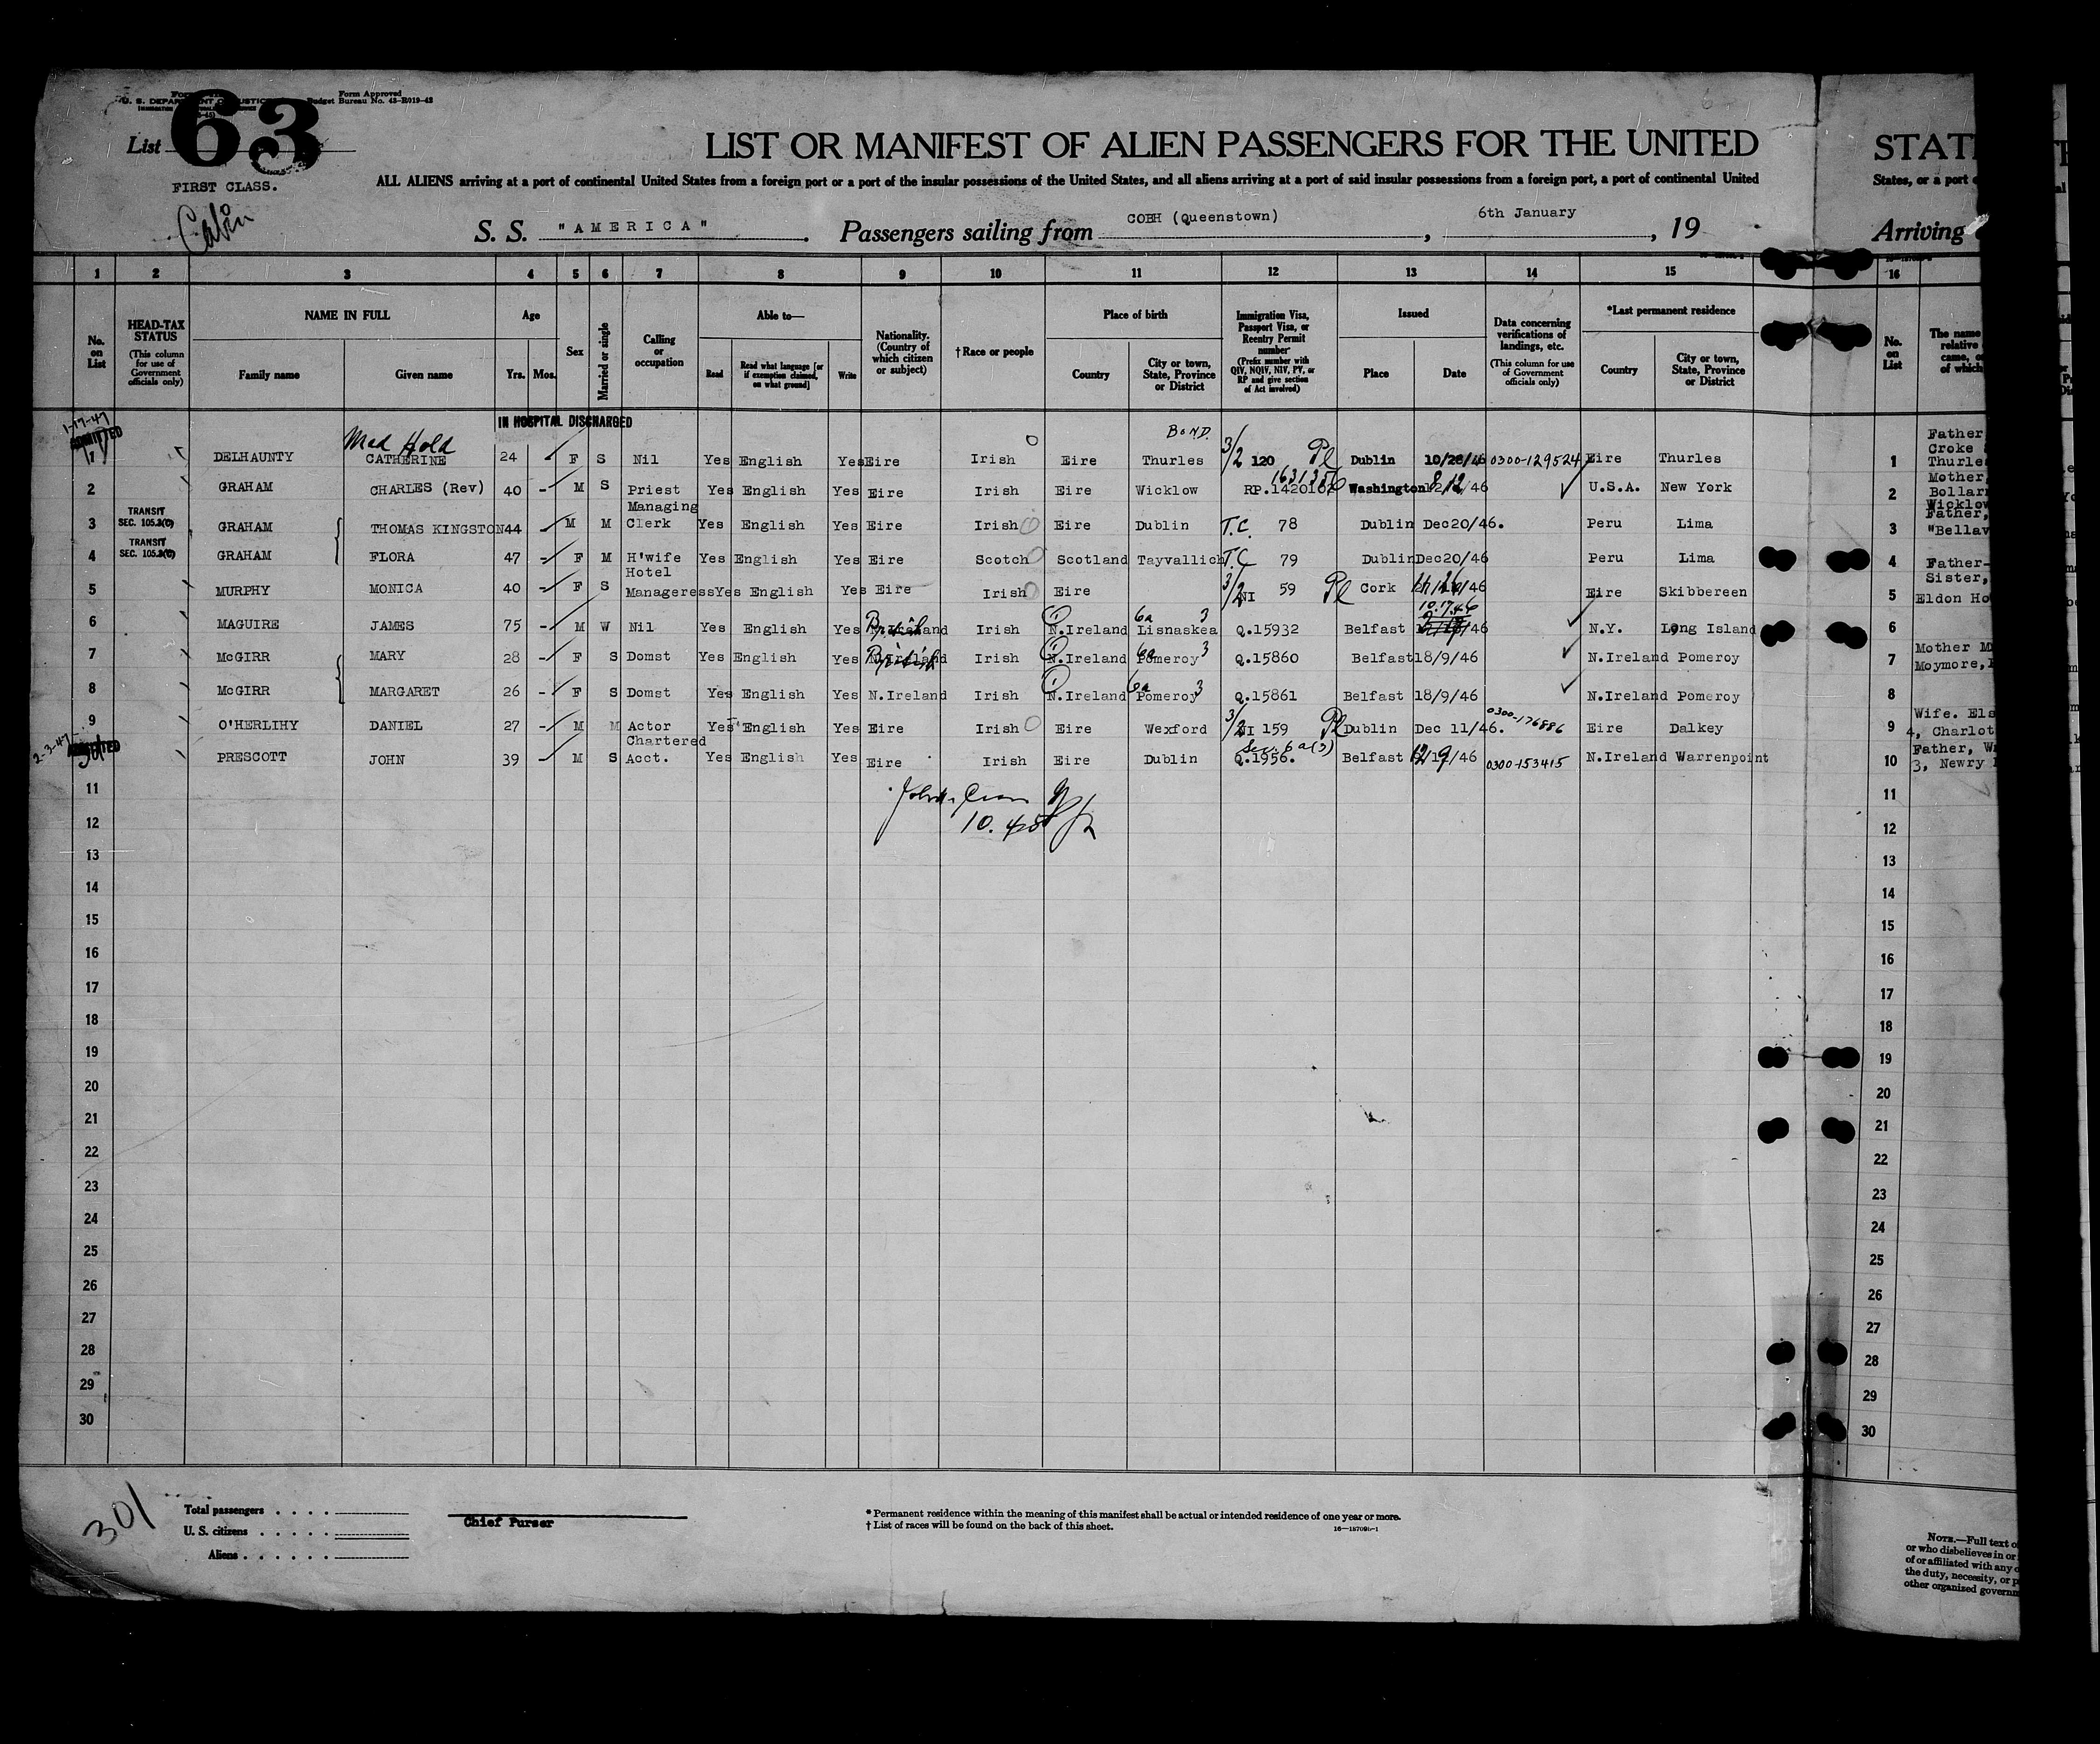 Form Approved
Budget Bureau No. 43-R019-43
List 63
FIRST CLASS.
Cabin
LIST OR MANIFEST OF ALIEN PASSENGERS FOR THE UNITED
STAT
ALL ALIENS arriving at a port of continental United States from a foreign port or a port of the insular possessions of the United States, and all aliens arriving at a port of said insular possessions from a foreign port, a port of continental United
States, or a port
S. S. "AMERICA". Passengers sailing from COBH (Queenstown), 6th January, 19
Arriving
1 2 3 4 5 6 7 8 9 10 11 12 13 14 15 16
No. on List
HEAD-TAX STATUS (This column for use of Government officials only)
NAME IN FULL
Family name
Given name
Age
Yrs. Mos.
Sex
Married or single
Calling or occupation
Able to—
Read
Read what language [or if exemption claimed, on what ground]
Write
Nationality. (Country of which citizen or subject)
† Race or people
Place of birth
Country
City or town, State, Province or District
Immigration Visa, Passport Visa, or Reentry Permit number (Prefix number with QIV, NQIV, NIV, PV, or RP and give section of Act involved)
Issued
Place
Date
Data concerning verifications of landings, etc. (This column for use of Government officials only)
*Last permanent residence
Country
City or town, State, Province or District
No. on List
The name
relative
came, o
of which
1-17-47
ADMITTED
IN HOSPITAL DISCHARGED
Med Hold
BOND.
1 DELHAUNTY CATHERINE 24 F S Nil Yes English Yes Eire Irish Eire Thurles 3/2 120 Dublin 10/28/46 0300-129524 Eire Thurles
1 Father Croke Thurle
2 GRAHAM CHARLES (Rev) 40 - M S Priest Yes English Yes Eire Irish Eire Wicklow RP. Washington /46 U.S.A. New York
2 Mother, Bollar Wicklow
3 TRANSIT SEC. 105.3(C) GRAHAM THOMAS KINGSTON 44 M M Managing Clerk Yes English Yes Eire Irish Eire Dublin T.C. 78 Dublin Dec20/46. Peru Lima
3 Father, "Bellav
4 TRANSIT SEC. 105.3(C) GRAHAM FLORA 47 - F M H'wife Yes English Yes Eire Scotch Scotland Tayvallich T.C 79 Dublin Dec20/46 Peru Lima
4 Father-
5 MURPHY MONICA 40 - F S Hotel Manageress Yes English Yes Eire Irish Eire 3/2 NI 59 Cork /46 Eire Skibbereen
5 Sister, Eldon Ho
6 MAGUIRE JAMES 75 - M W Nil Yes English Yes British Irish N.Ireland Lisnaskea 6a 3 Q.15932 Belfast 10.17.46 N.Y. Long Island
6
7 McGIRR MARY 28 - F S Domst Yes English Yes British Irish N.Ireland Pomeroy 6a 3 Q.15860 Belfast 18/9/46 N.Ireland Pomeroy
7 Mother M Moymore,
8 McGIRR MARGARET 26 - F S Domst Yes English Yes N.Ireland Irish N.Ireland Pomeroy 6a 3 Q.15861 Belfast 18/9/46 N.Ireland Pomeroy
8
9 O'HERLIHY DANIEL 27 - M M Actor Yes English Yes Eire Irish Eire Wexford 3/2 NI 159 Dublin Dec 11/46. 0300-176886 Eire Dalkey
9 Wife. Els 4, Charlot
2-3-47
ADMITTED
10 PRESCOTT JOHN 39 M S Chartered Acct. Yes English Yes Eire Irish Eire Dublin Sec. 6a(3) Q.1956. Belfast 12/19/46 0300-153415 N.Ireland Warrenpoint
10 Father, W 3, Newry
11 11
12 12
13 13
14 14
15 15
16 16
17 17
18 18
19 19
20 20
21 21
22 22
23 23
24 24
25 25
26 26
27 27
28 28
29 29
30 30
301
Total passengers . . . .
U. S. citizens . . . . .
Aliens . . . . . .
Chief Purser
* Permanent residence within the meaning of this manifest shall be actual or intended residence of one year or more.
† List of races will be found on the back of this sheet.
NOTE.—Full text o
or who disbelieves in or
of or affiliated with any o
the duty, necessity, or p
other organized governm